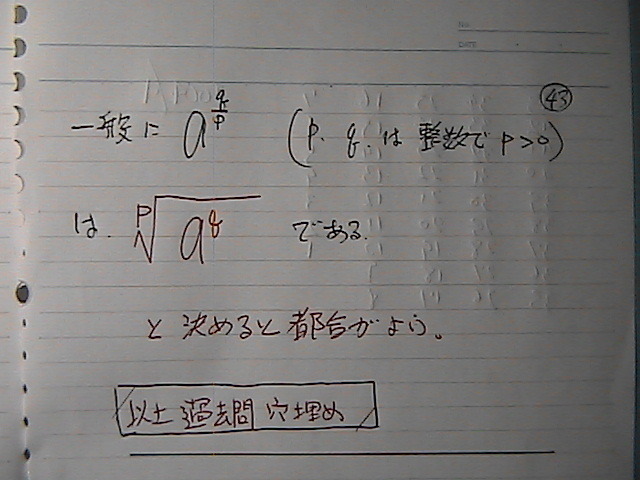 No.
DATE
㊸
一般に a^{q/p} (p、q、は 整数で p>0)
は、 \sqrt[p]{a^q} である。
と 決めると 都合がよい。
以上 過去問 穴埋め